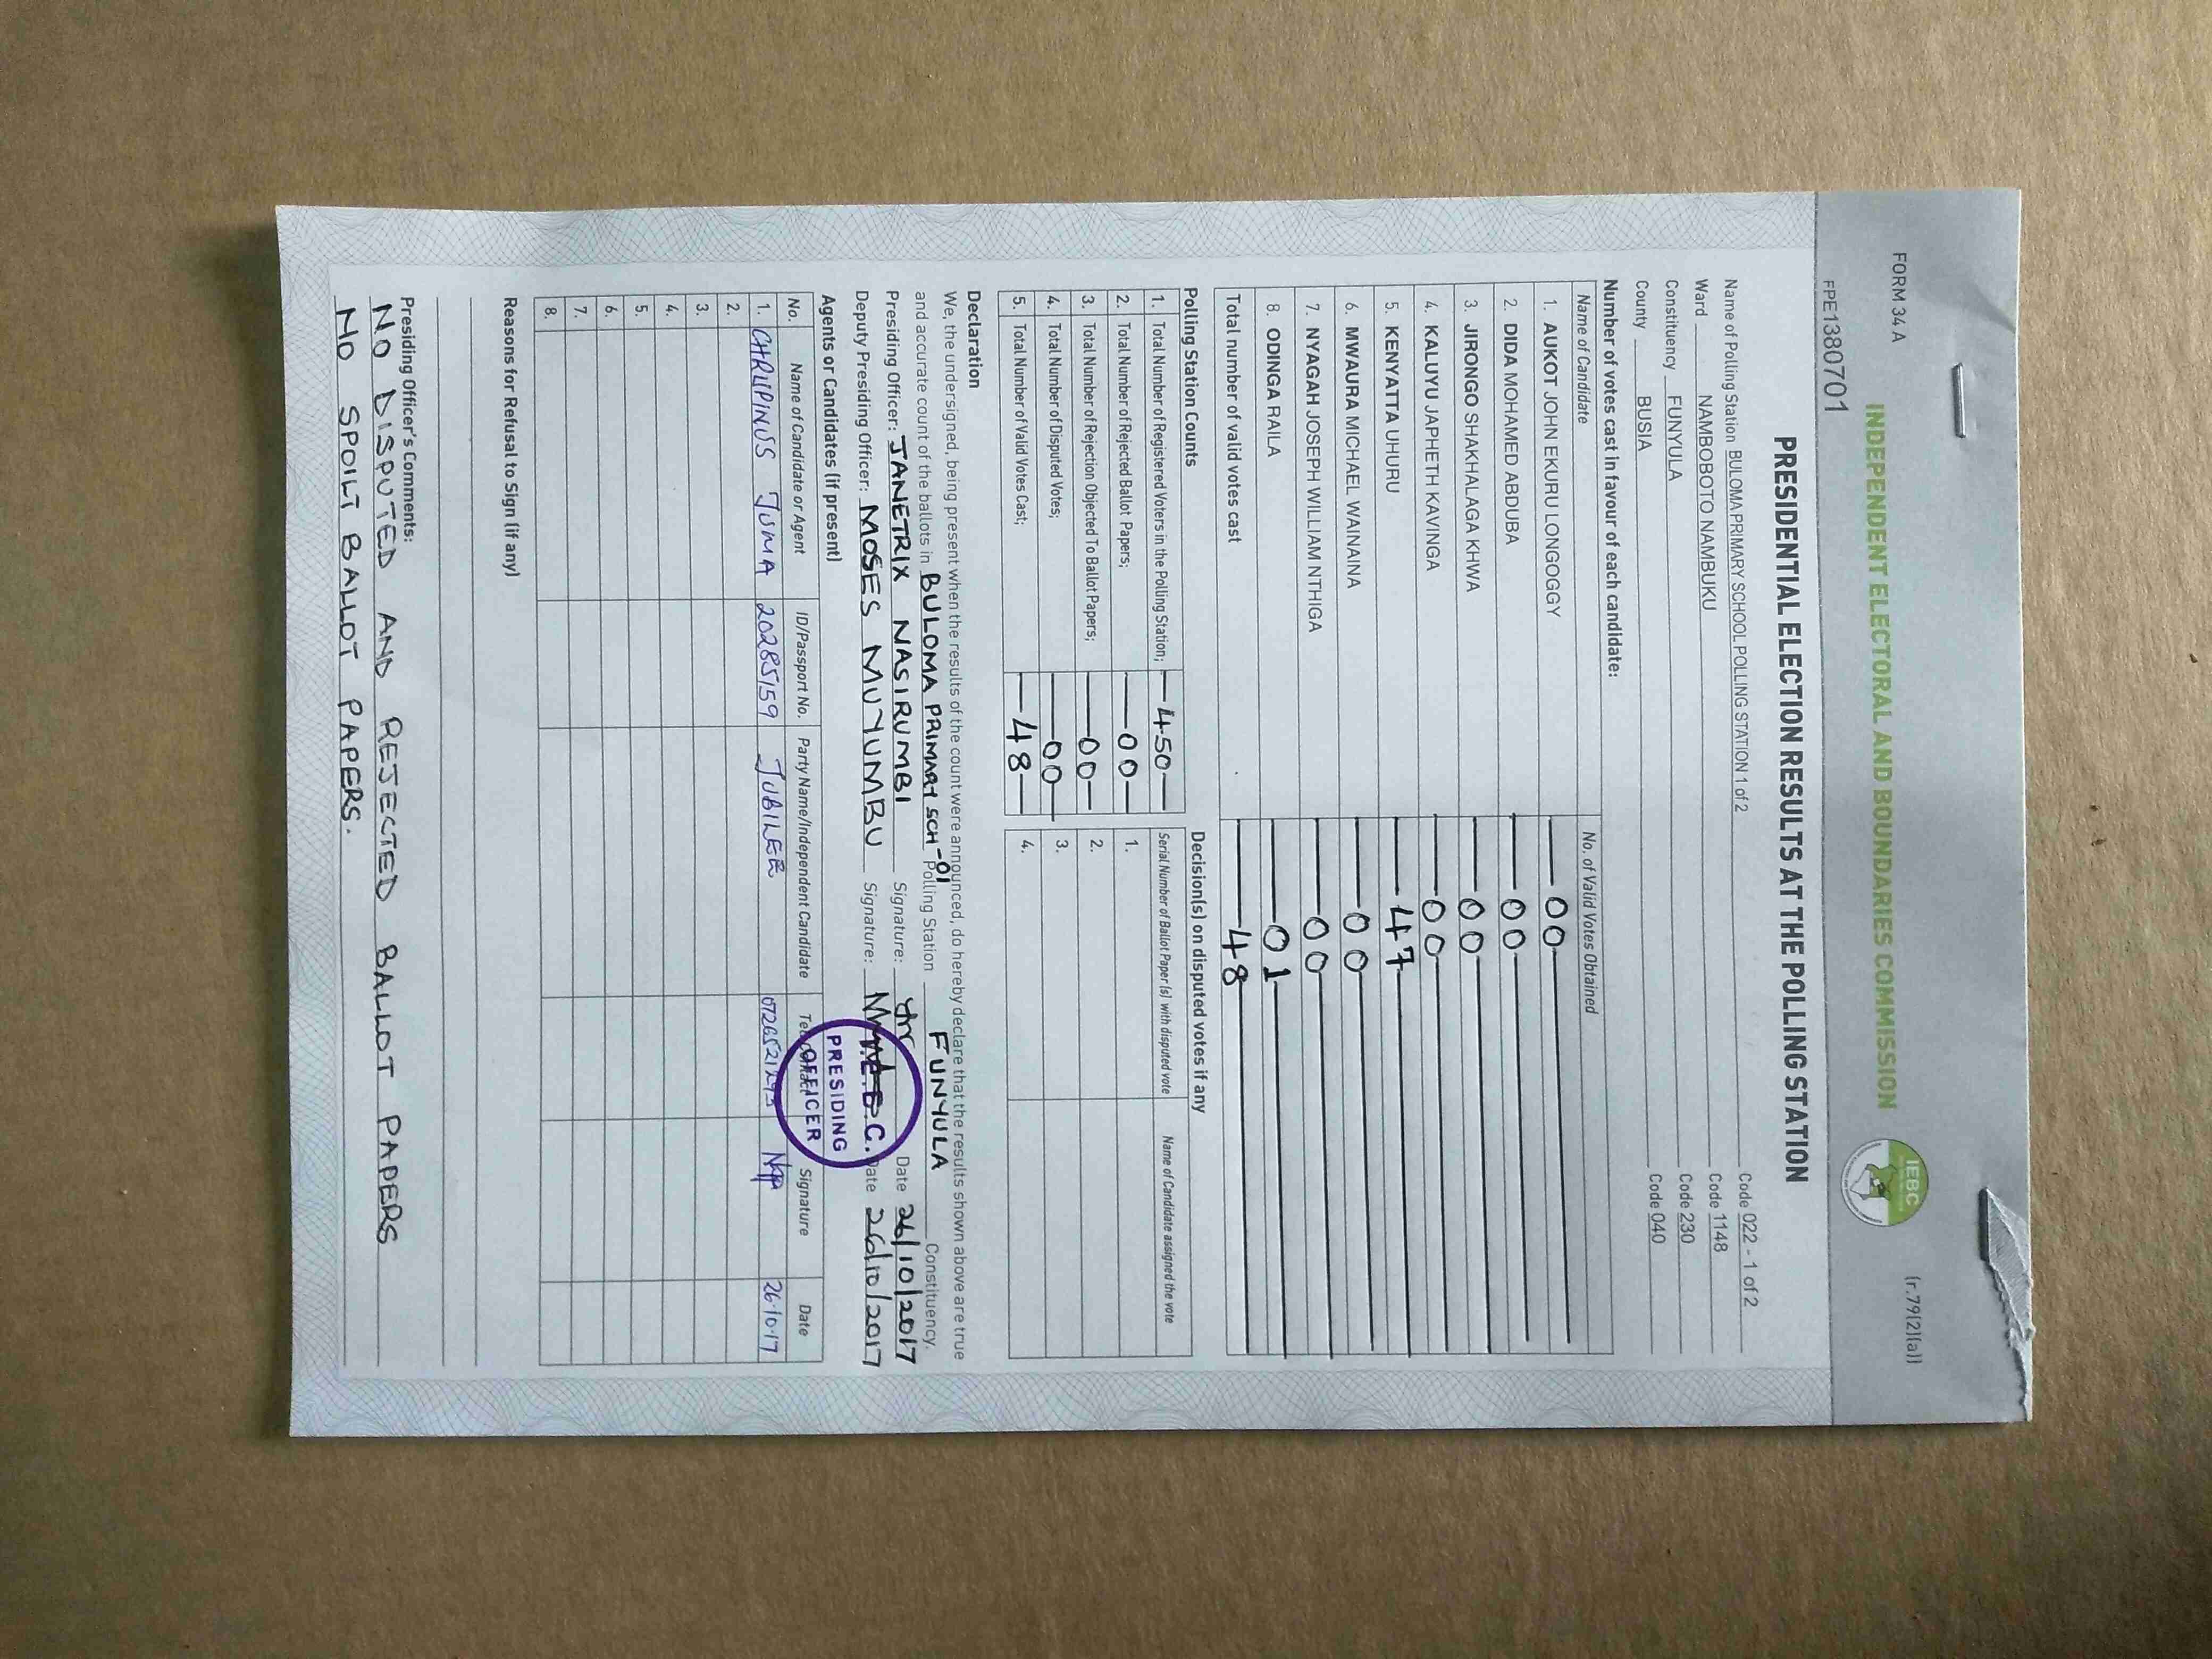 FORM 34 A
(r.79(2)(a))
INDEPENDENT ELECTORAL AND BOUNDARIES COMMISSION
IEBC
FPE1380701
PRESIDENTIAL ELECTION RESULTS AT THE POLLING STATION
Name of Polling Station BULOMA PRIMARY SCHOOL POLLING STATION 1 of 2 Code 022 - 1 of 2
Ward NAMBOBOTO NAMBUKU Code 1148
Constituency FUNYULA Code 230
County BUSIA Code 040
Number of votes cast in favour of each candidate:
Name of Candidate No. of Valid Votes Obtained
1. AUKOT JOHN EKURU LONGOGGY 00
2. DIDA MOHAMED ABDUBA 00
3. JIRONGO SHAKHALAGA KHWA 00
4. KALUYU JAPHETH KAVINGA 00
5. KENYATTA UHURU 47
6. MWAURA MICHAEL WAINAINA 00
7. NYAGAH JOSEPH WILLIAM NTHIGA 00
8. ODINGA RAILA 01
Total number of valid votes cast 48
Polling Station Counts
1. Total Number of Registered Voters in the Polling Station; 450
2. Total Number of Rejected Ballot Papers; 00
3. Total Number of Rejection Objected To Ballot Papers; 00
4. Total Number of Disputed Votes; 00
5. Total Number of Valid Votes Cast; 48
Decision(s) on disputed votes if any
Serial Number of Ballot Paper (s) with disputed vote Name of Candidate assigned the vote
1.
2.
3.
4.
Declaration
We, the undersigned, being present when the results of the count were announced, do hereby declare that the results shown above are true
and accurate count of the ballots in BULOMA PRIMARY SCH-01 Polling Station FUNYULA Constituency.
Presiding Officer: JANETRIX NASIRUMBI Signature: Date 26/10/2017
Deputy Presiding Officer: MOSES MUYUMBU Signature: Date 26/10/2017
PRESIDING
OFFICER
Agents or Candidates (if present)
No. Name of Candidate or Agent ID/Passport No. Party Name/Independent Candidate Signature Date
1. CHRLIPINUS JUMA 20285159 JUBILEE 26·10·17
2.
3
4.
5.
6.
7.
8.
Reasons for Refusal to Sign (if any)
Presiding Officer's Comments:
NO DISPUTED AND REJECTED BALLOT PAPERS
NO SPOILT BALLOT PAPERS.